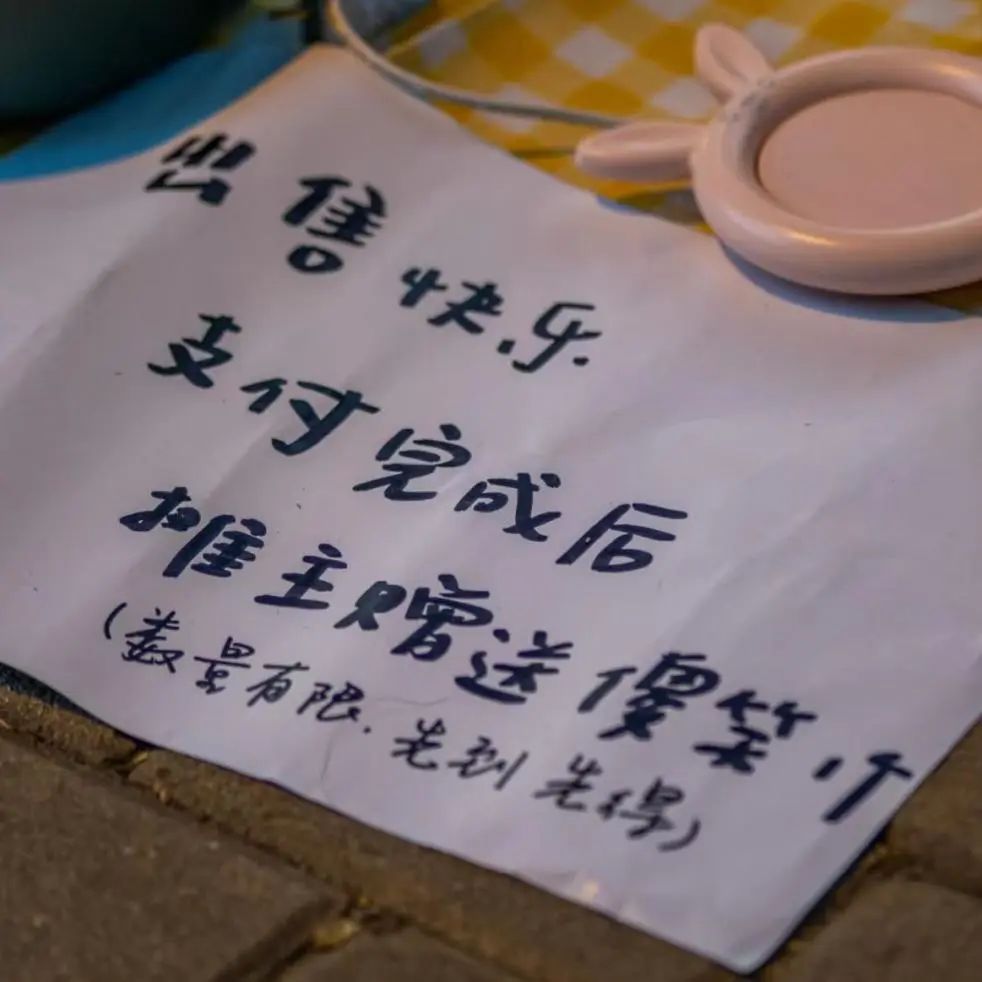 出售快乐
支付完成后
摊主赠送傻笑1个
(数量有限.先到先得)